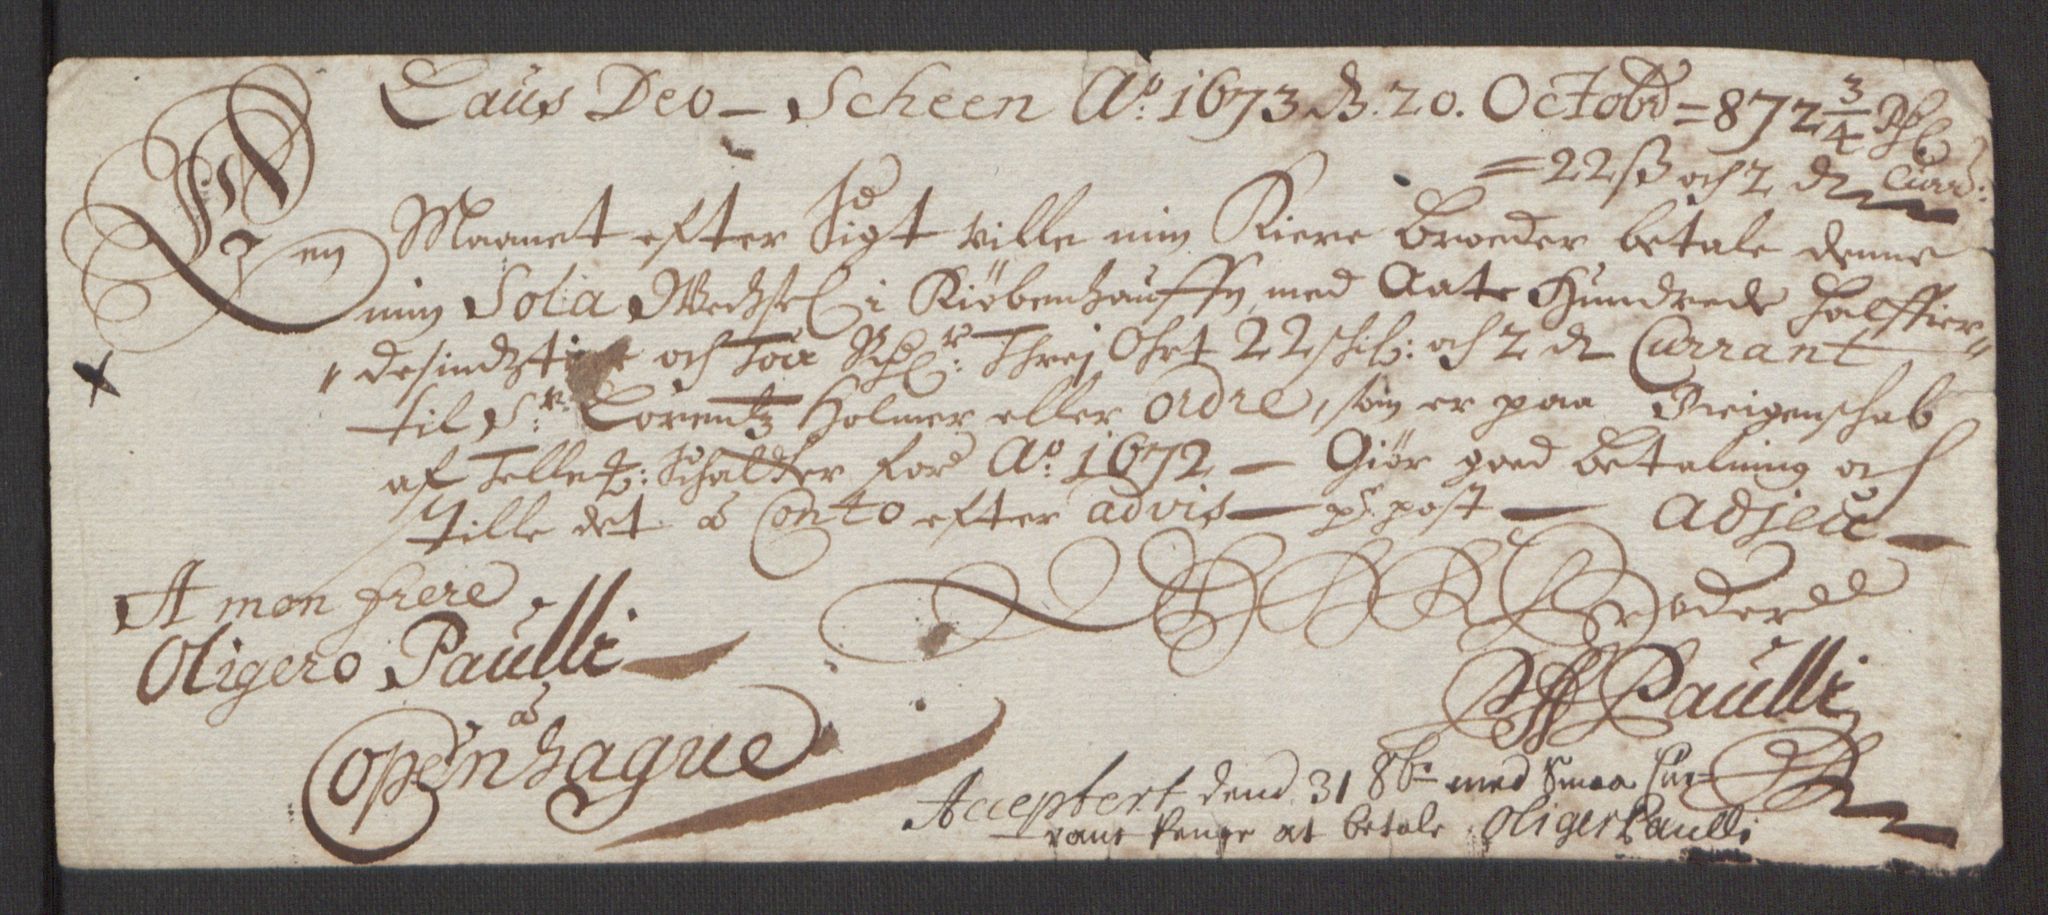 Laus Deo – Scheen Ao. 1673 D. 20. Octobr = 872 3/4 Rdl
= 22 ß och 2 d Curr:
En Maanet efter Sigt ville min Kiere Broeder betale denne
min Sola Wechsel i Kiöbenhauffn, med Aate Hundrede halffier-
desindztiue och Toe Rdlr: Threj Ohrt 22 schil: och 2 d Currant
til Sr. Lorentz Holmer eller Ordre, som er paa Reigenschab
af Schatter for Ao. 1672 – Giör goed betalning och
stille det â Conto efter advis – pr. post – Adjeu –
A mon frere
Oligero Paulli
â
Copenhague
Broder
Paulli
Acceptert dend 31 8br med Smaa Cur=
rant penge at betale. Oliger Paulli